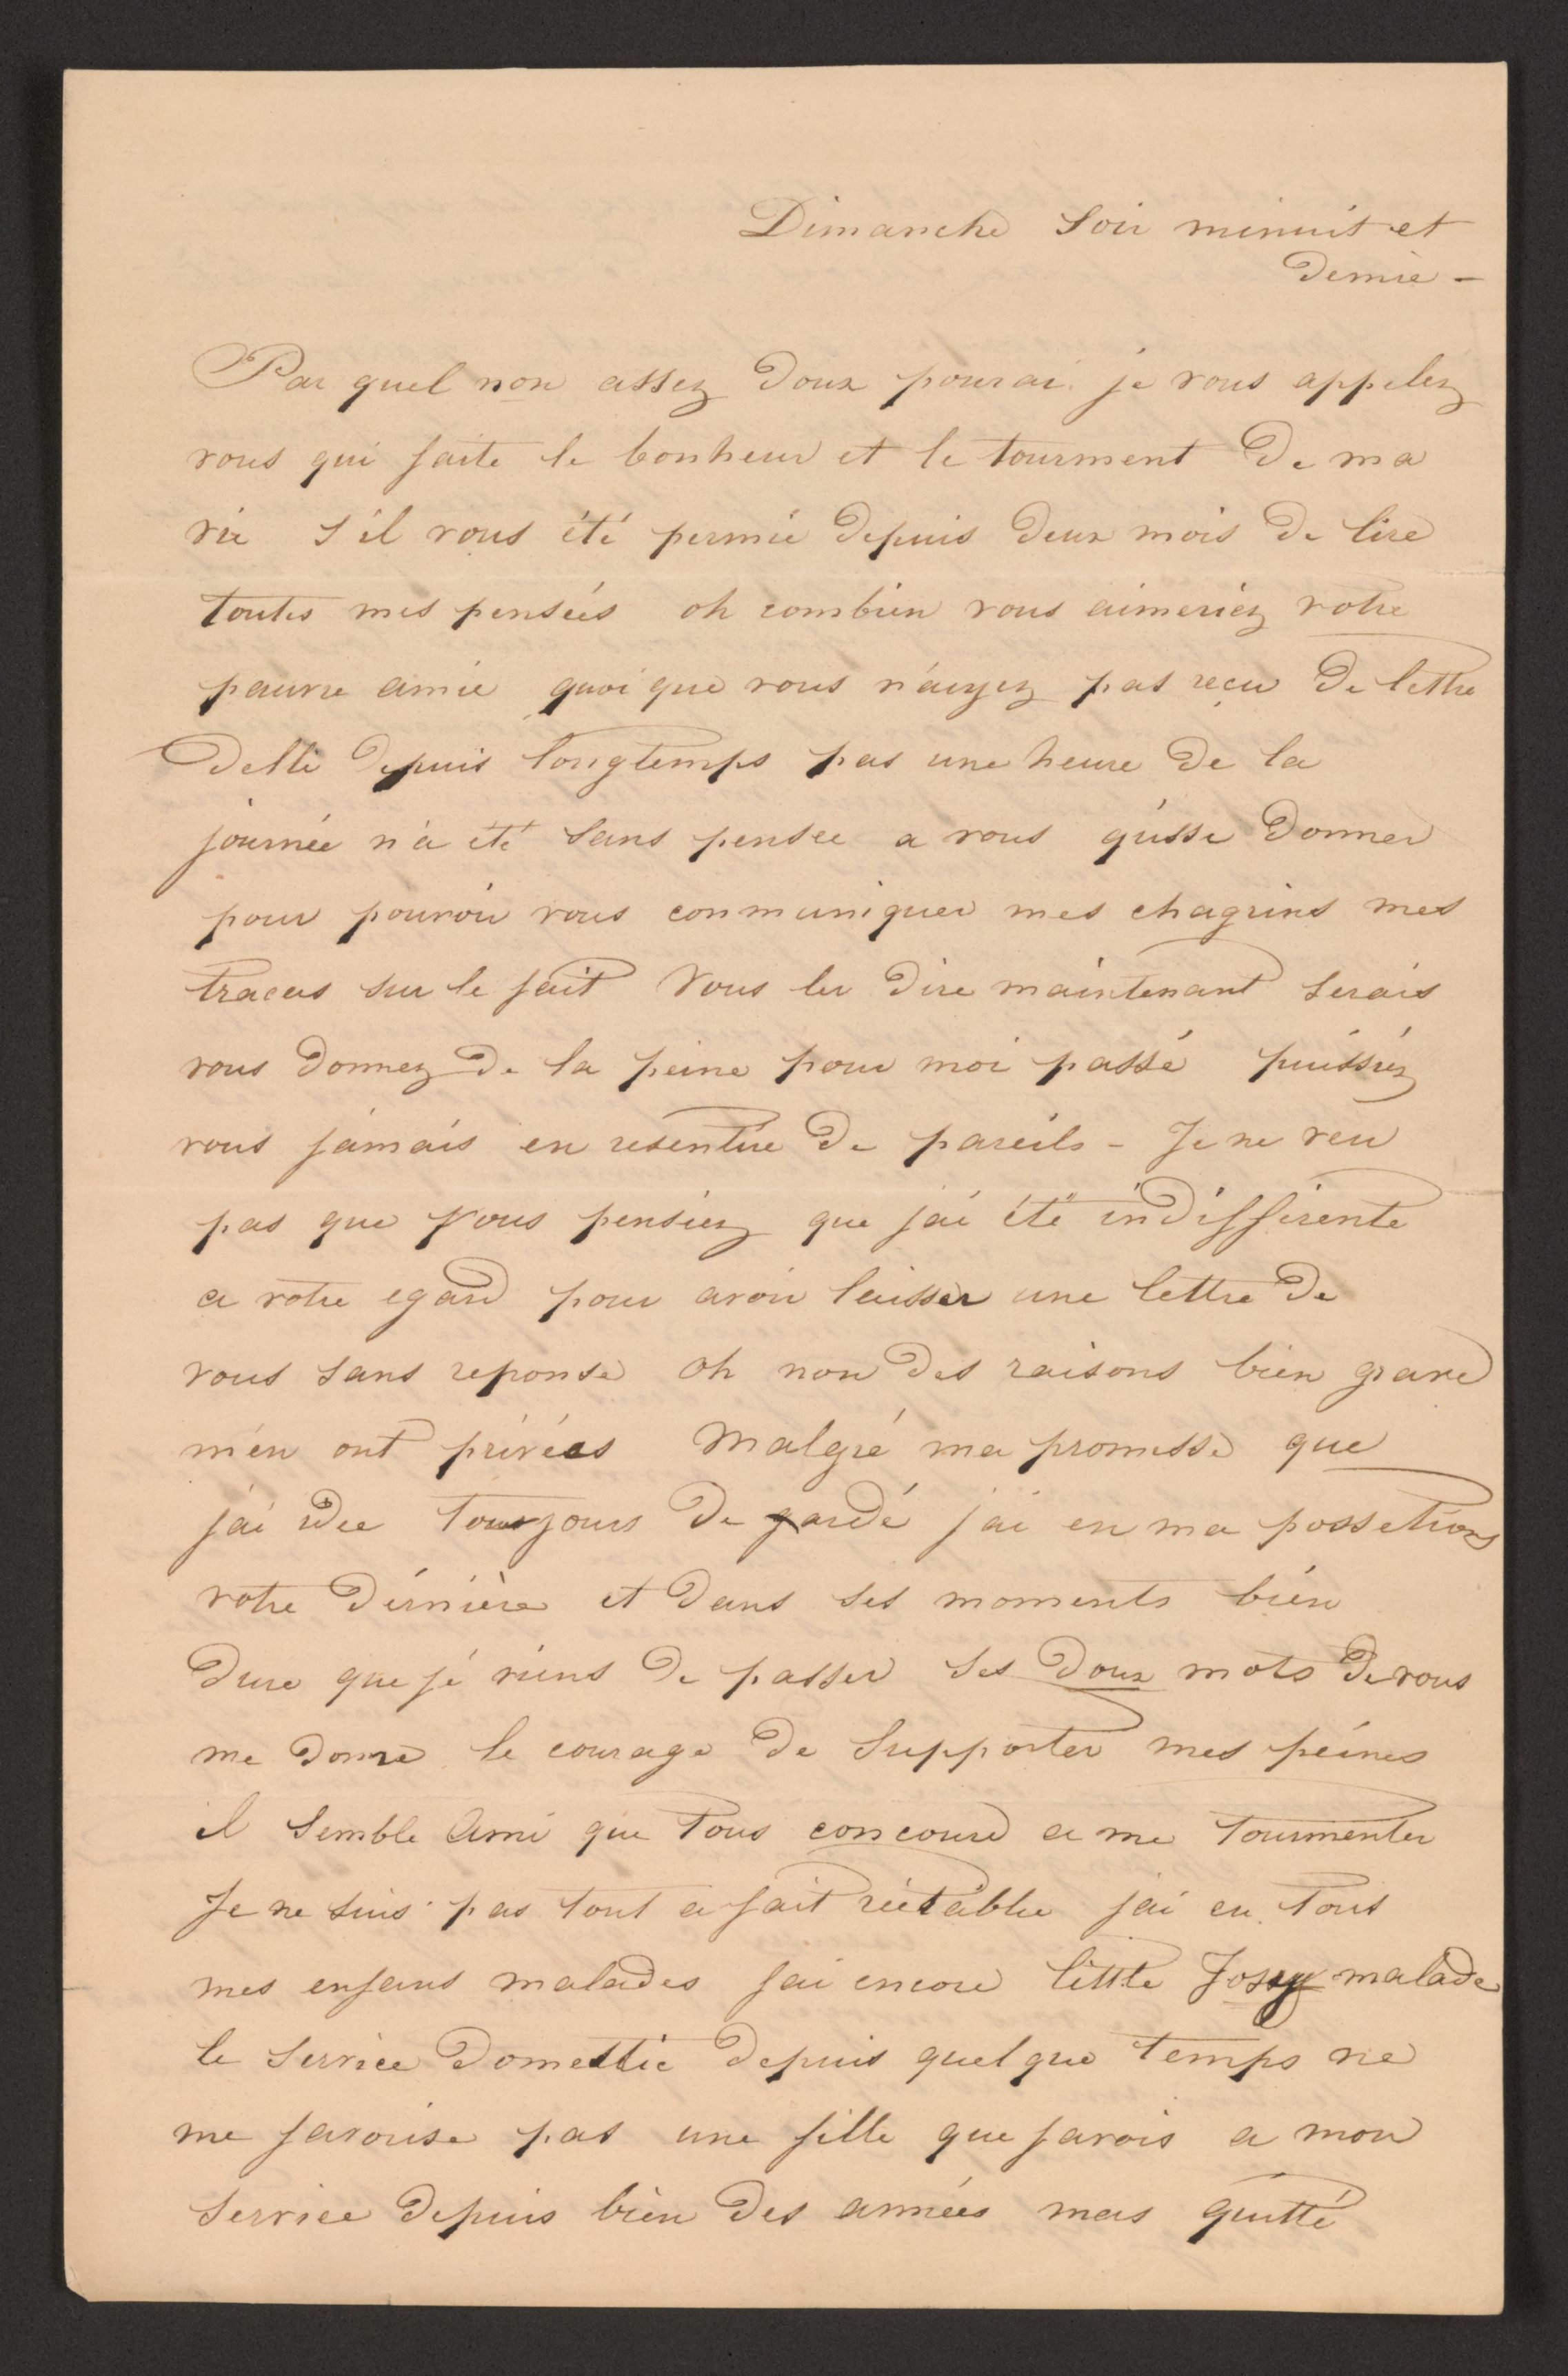 Dimanche Soir minuit et
Demie -
Par quel non assez Doux pourai je vous appelez
vous qui faite le bonheur et le tourment De ma
vie s'il vous été permie Depuis Deux mois De lire
toutes mes pensées oh combien vous aimeriez votre
pauvre amie quoique vous n'ayez pas reçu De lettre
Delle Depuis longtemps pas une heure De la
journée n'a été sans pensee a vous qu'sse Donner
pour pouvoir vous conmuniquer mes chagrins mes
tracas sur le fait Vous les Dire maintenant serais
vous Donnez De la peine pour moi passé puissiez
vous jamais en resentire De pareils - Je ne veu
pas que Vous pensiez que j'ai été indifferente
a votre egard pour avoir laisser une lettre De
vous sans reponse oh non Des raisons bien grave
m'en ont privées Malgré ma promesse que
j'ai toujours De gardé j'ai en ma possetions
votre Dérnière et Dans ses moments bien
Dure que je viens De passer ses Doux mots De vous
me Donne le courage De Supporter mes peines
il Semble Ami que Tous concoure a me tourmenter
Je ne suis pas tout a fait réétablie j'ai eu Tous
mes enfans malades j'ai encore little Jossy malade
le service Domestic Depuis quelque temps ne
me favorise pas une fille que j'avois a mon
Service Depuis bien Des années mas quitté